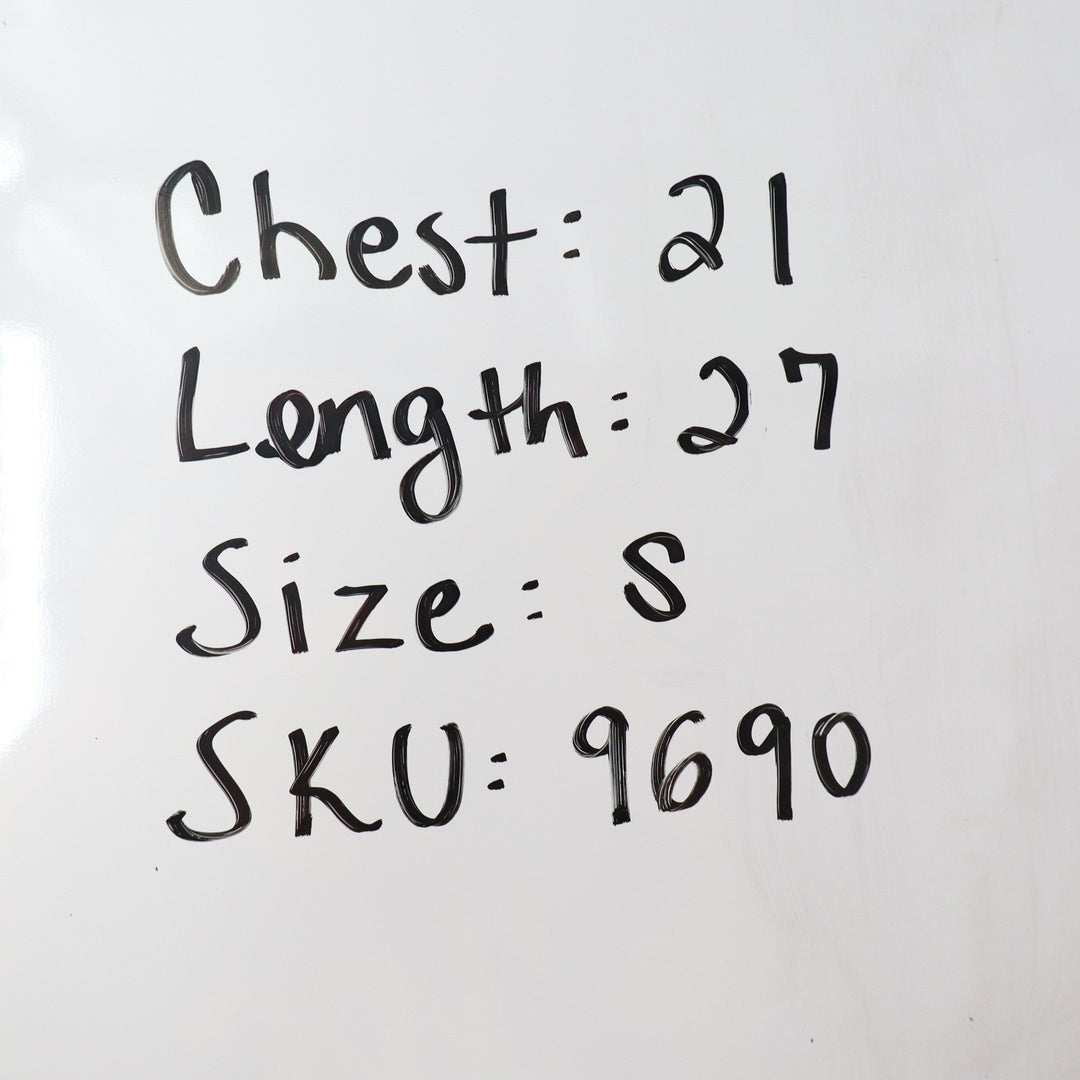 Chest: 21
Length: 27
Size: S
SKU: 9690